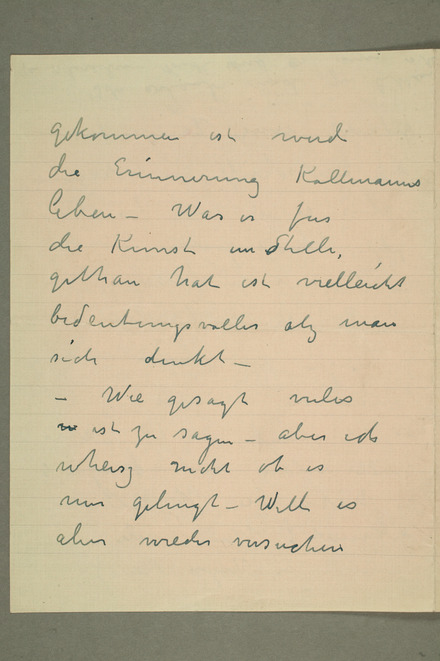 gekommen ist wird
die Erinnerung Kallmanns
leben – Was er für
die Kunst im Stille,
gethan hat ist vielleicht
bedeutungsvoller als man
sich denkt –
– Wie gesagt vieles
ist zu sagen – aber ich
nicht ob es
mir gelingt – Will es
aber wieder versuchen